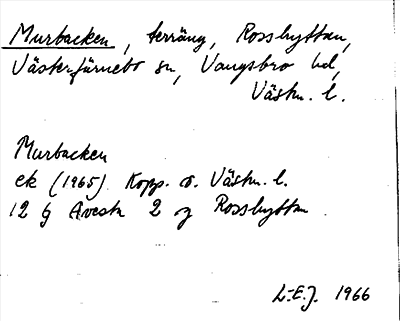 Murbacken, terräng, Rosshyttan,
Västerfärnebo sn, Vangsbro hd,
Västm. l.
Murbacken
ek (1965) Kopp. o. Västm. l.
12 g Avesta 2 og Rosshyttan
L-E.J. 1966